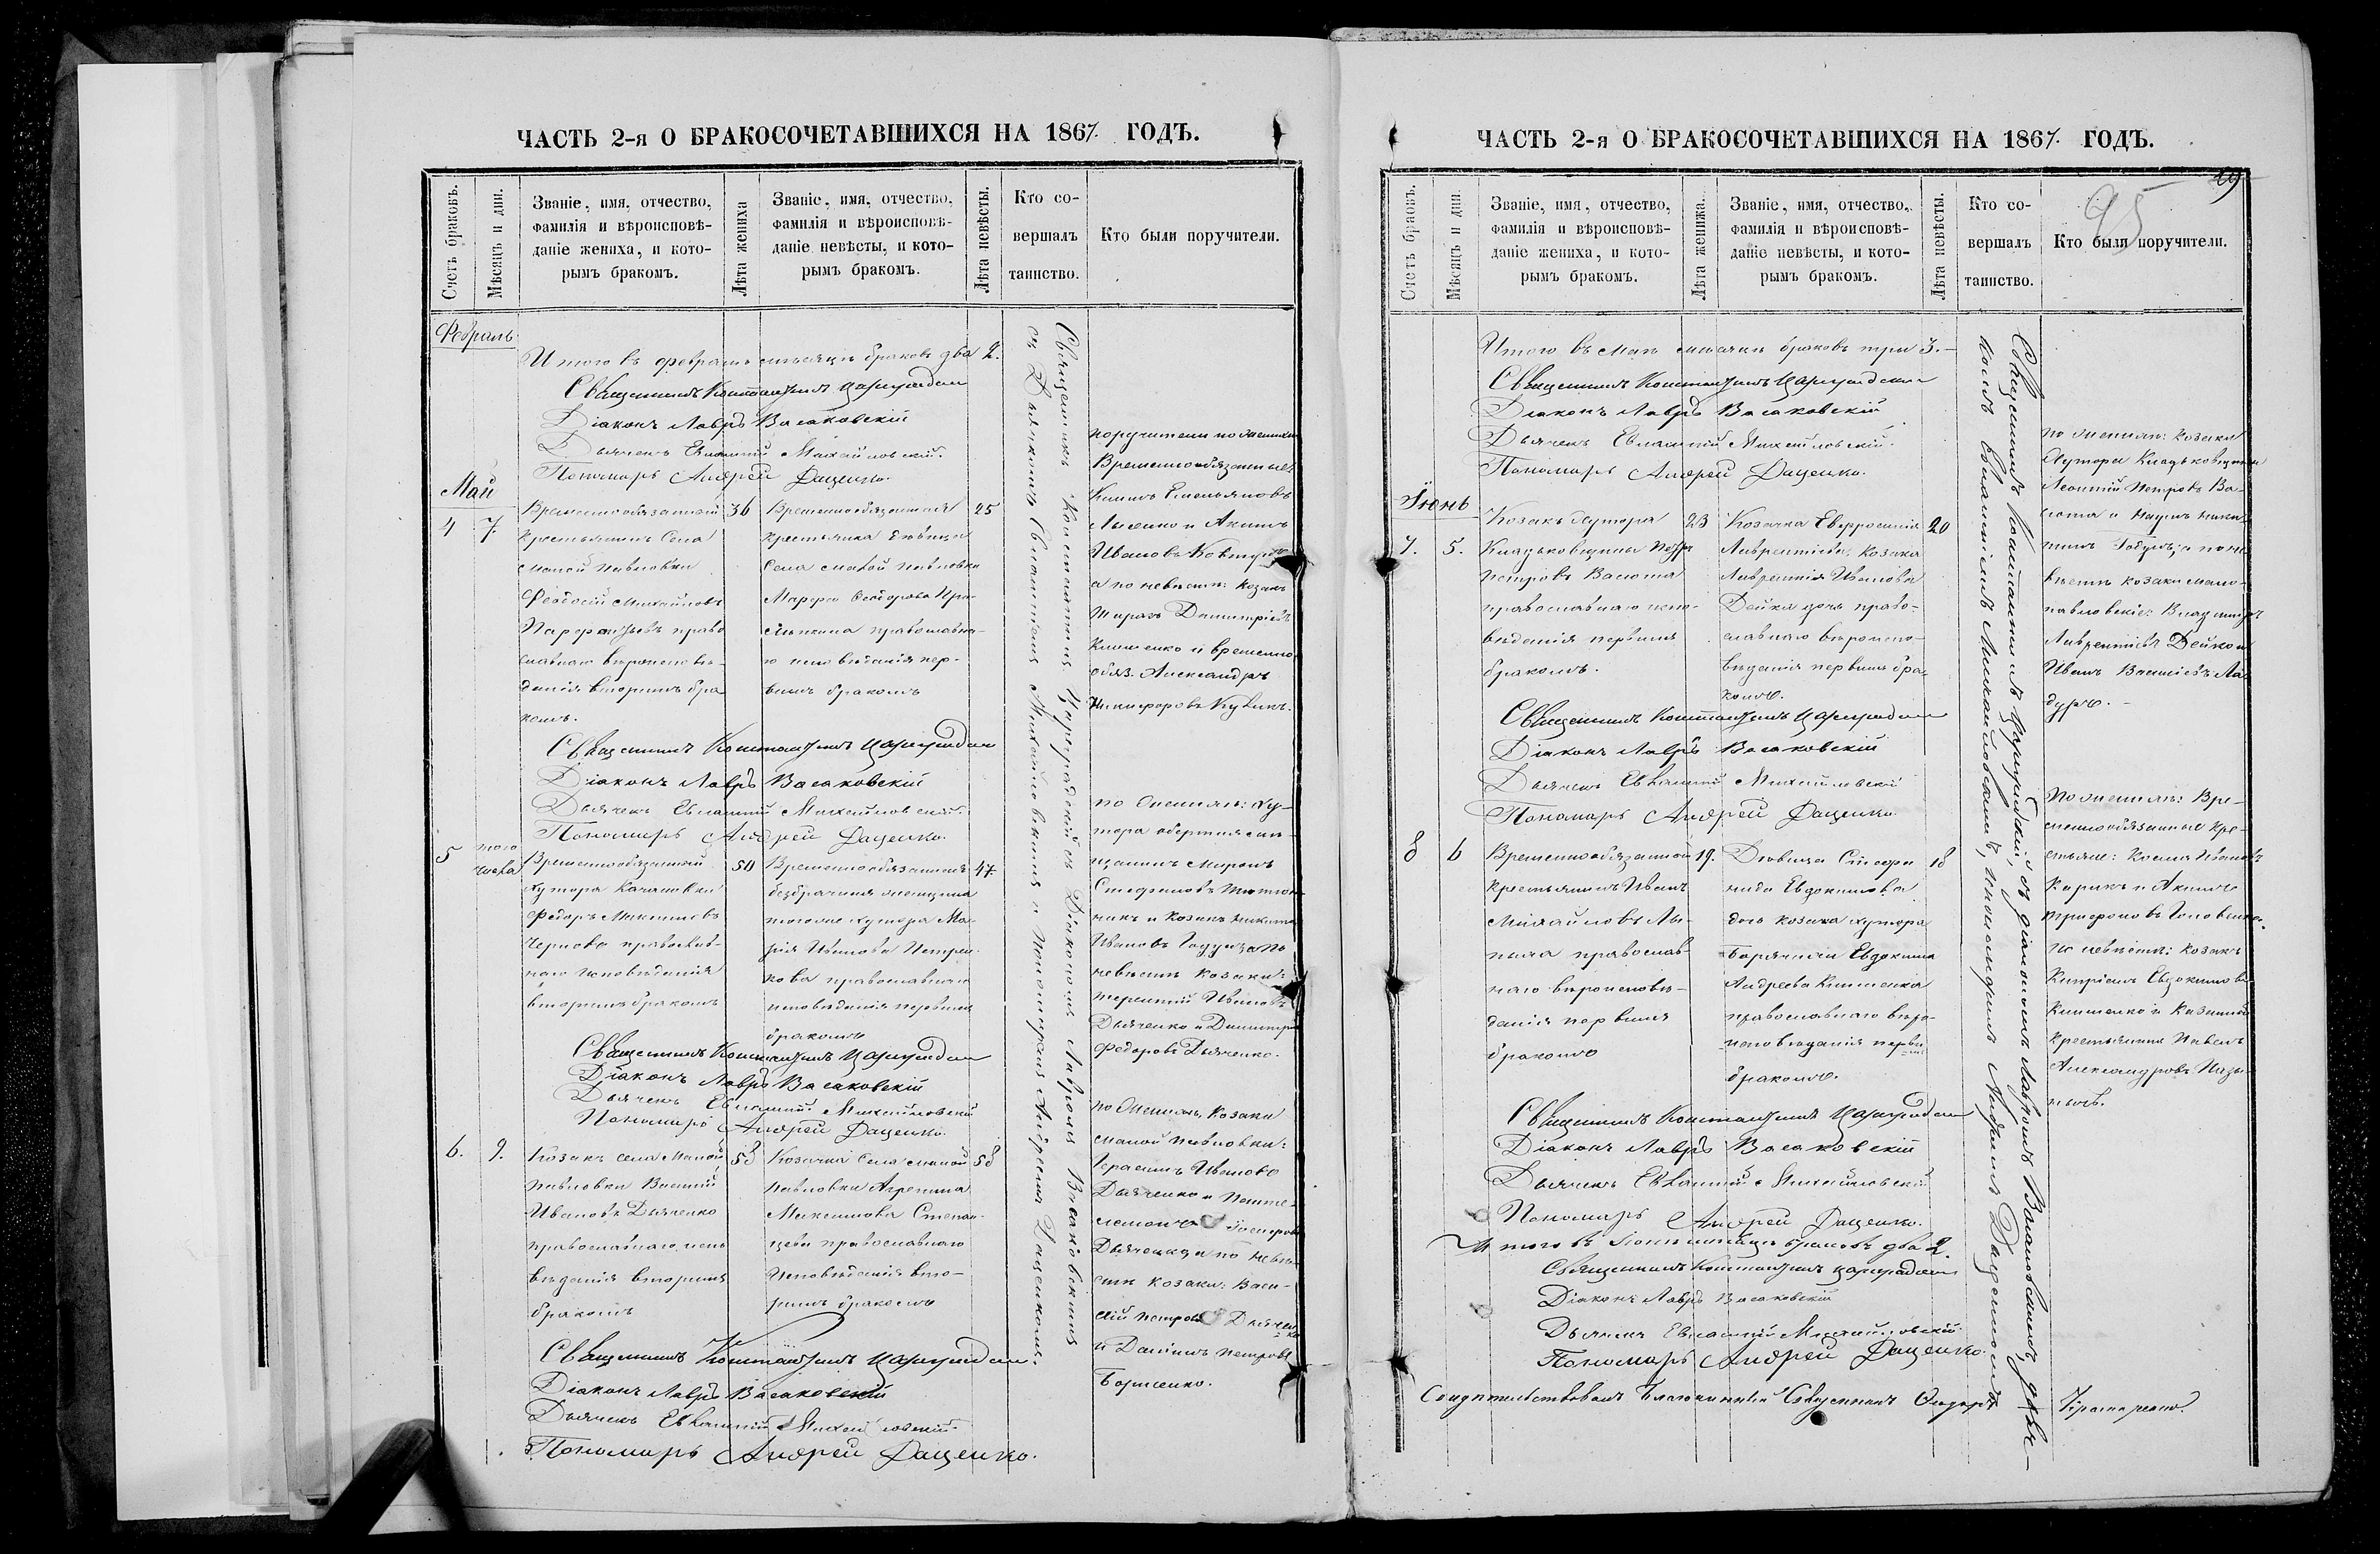 ЧАСТЬ 2-я О БРАКОСОЧЕТАВШИХСЯ НА 1867. ГОДЪ.
Счетъ браковъ.
Мѣсяцъ и дни.
Званіе, имя, отчество,
фамилія и вѣроисповѣ-
даніе жениха, и кото-
рымъ бракомъ.
Лѣта жениха
Званіе, имя, отчество,
фамилія и вѣроисповѣ-
даніе невѣсты, и кото-
рымъ бракомъ.
Лѣта невѣсты.
Кто со-
вершалъ
таинство.
Кто были поручители.
Февраль
Итого въ февралѣ мѣсяцѣ браковъ два 2.
Священникъ Константинъ Цареградскій
Діаконъ Лавръ Васаковскій
Дьячекъ Евлампій Михайловскій.
Пономарь Андрей Даценко.
Май
4
7
Временнообязанный
крестьянинъ Села
Малой Павловки
Феодосій Михайловъ
право
славнаго вѣроисповѣ-
данія вторымъ бра
комъ.
36
Временнообязанная
крестьянка дѣвица
Села Малой Павловки
Марфа Феодорова
православна-
го исповѣданія пер-
вымъ бракомъ
25
Священникъ Константинъ Цареградскій съ Діакономъ Лавромъ Васаковскимъ
съ Дьячкомъ Евлампіемъ Михайловскимъ и Пономаремъ Андреемъ Даценкомъ.
поручители по женихѣ
Временнообязанные:
Емельяновъ
Лысенко и Акимъ
Ивановъ
а по невѣстѣ: козакъ
Димитріевъ
Клименко и временно
обяз. Александръ
Никифоровъ
Священникъ Константинъ Цареградскій
Діаконъ Лавръ Васаковскій
Дьячекъ Евлампій Михайловскій.
Пономарь Андрей Даценко.
5
того
числа
Временнообязанный
хутора
Федоръ Максимовъ
Черновъ православ-
наго исповѣданія
вторымъ бракомъ
50
Временнообязанная
безбрачная женщина
того же хутора Ма-
рія Иванова
кова православнаго
исповѣданія первымъ
бракомъ
47
по женихѣ: ху-
тора
Миронъ
Стефановъ
никъ и козакъ Никита
Ивановъ по
невѣстѣ козаки:
Терентій Ивановъ
Дьяченко и Димитрій
Федоровъ Дьяченко.
Священникъ Константинъ Цареградскій
Діаконъ Лавръ Васаковскій
Дьячекъ Евлампій Михайловскій
Пономарь Андрей Даценко.
6.
9.
Козакъ села Малой
Павловки Василій
Ивановъ Дьяченко
православнаго испо
вѣданія вторымъ
бракомъ
58
Козачка Села Малой
Павловки Агрепина
Максимова Степан-
цева православнаго
Исповѣданія вто-
рымъ бракомъ
58
по женихѣ, козаки
Малой Павловки:
Герасимъ Ивановъ
Дьяченко и Панте-
леимонъ
Дьяченко; а по невѣ-
стѣ козаки: Васи-
лій Петровъ Дьячен
ко
и Даніилъ Петровъ
Борисенко.
Священникъ Константинъ Цареградскій.
Діаконъ Лавръ Васаковскій
Дьячекъ Евлампій Михайловскій.
Пономарь Андрей Даценко.
ЧАСТЬ 2-я О БРАКОСОЧЕТАВШИХСЯ НА 1867. ГОДЪ.
95
Счетъ браковъ.
Мѣсяцъ и дни.
Званіе, имя, отчество,
фамилія и вѣроисповѣ-
даніе жениха, и кото-
рымъ бракомъ.
Лѣта жениха.
Званіе, имя, отчество,
фамилія и вѣроисповѣ-
даніе невѣсты, и кото-
рымъ бракомъ.
Лѣта невѣсты.
Кто со-
вершалъ
таинство.
Кто были поручители.
Итого въ маѣ мѣсяцѣ браковъ три 3.
Священникъ Константинъ Цареградскій
Діаконъ Лавръ Васаковскій
Дьячекъ Евлампій Михайловскій.
Пономарь Андрей Даценко.
Іюнь
7.
5.
Козакъ хутора
Петръ
Петровъ Васюта
православнаго испо-
вѣданія первымъ
бракомъ.
23
Козачка Евфросинія
Лаврентіева, козака
Лаврентія Иванова
Дейка дочь право-
славнаго вѣроиспо-
вѣданія первымъ бра
комъ.
20
Священникъ Константинъ Цареградскій, съ діакономъ Лавромъ Васаковскимъ, дьяч-
комъ Евлампіемъ Михайловскимъ, пономаремъ Андреемъ Даценкомъ
по женихѣ: козаки
хутора
Леонтій Петровъ Ва-
сюта и Наумъ Ники-
по не
вѣстѣ козаки мало-
павловскіе: Владиміръ
Лаврентіевъ Дейко и
Иванъ Васильевъ
Священникъ Константинъ Цареградскій
Діаконъ Лавръ Васаковскій
Дьячекъ Евлампій Михайловскій
Пономарь Андрей Даценко.
8
6
Временнообязанной
крестьянинъ Иванъ
Михайловъ
православ
наго вѣроисповѣ-
данія первымъ
бракомъ
19.
Дѣвица
нида Евдокимова
дочь козака хутора
Евдокима
Андреева Клименка
православнаго вѣро-
исповѣданія первы
бракомъ.
18
По женихѣ: Вре-
меннообязанные кре-
стьяне: Козма Ивановъ
и Акимъ
Трифоновъ Головенко.
по невѣстѣ: козакъ
Кипріанъ Евдокимовъ
Клименко и Казенный
крестьянинъ Павелъ
Александровъ
Священникъ Константинъ Цареградскій
Діаконъ Лавръ Васаковскій
Дьячекъ Евлампій Михайловскій
Пономарь Андрей Даценко.
Итого въ Іюнѣ мѣсяцѣ браковъ два 2.
Священникъ Константинъ Цареградскій
Діаконъ Лавръ Васаковскій
Дьячекъ Евлампій Михайловскій
Пономарь Андрей Даценко.
Свидѣтельствовалъ Благочинный Священникъ